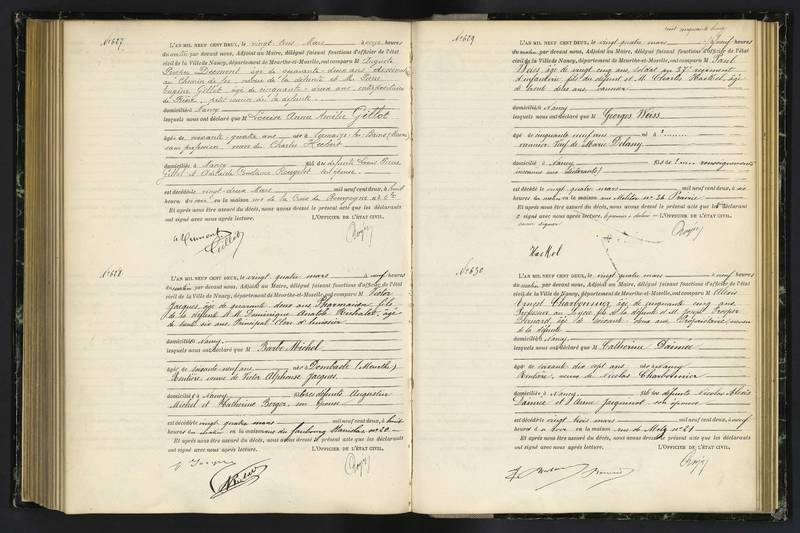 N° 627
L'AN MIL NEUF CENT DEUX, le vingt trois Mars à onze heures
du matin par devant nous, Adjoint au Maire, délégué faisant fonctions d'officier de l'état
civil de la Ville de Nancy, département de Meurthe-et-Moselle, ont comparu M Auguste
âgé de quarante deux ans
au Chemin de fer de la défunte et M. Pierre
Eugène Gillot, âgé de cinquante deux ans,
cousin de la défunte
domiciliés à Nancy
lesquels nous ont déclaré que M Louise Anne Amélie Gillot
âgée de soixante quatre ans née à
sans profession, veuve de Charles Hubert
domiciliée à Nancy
Gillot et son épouse
est décédée vingt deux Mars mil neuf cent deux, à huit
heures du soir en la maison rue de la Croix de Bourgogne n°
Et après nous être assuré du décès, nous avons dressé le présent acte que les déclarants
ont signé avec nous après lecture. L'OFFICIER DE L'ÉTAT CIVIL.
Gillot
N° 628
L'AN MIL NEUF CENT DEUX, le vingt quatre mars à neuf heures
du matin par devant nous, Adjoint au Maire, délégué faisant fonctions d'officier de l'état
civil de la Ville de Nancy, département de Meurthe-et-Moselle, ont comparu M Victor
Jacques, âgé de quarante deux ans Pharmacien, fils
de la défunte et M. Dominique Anatole âgé
de trente six ans Principal Clerc d'huissier
domiciliés à Nancy
lesquels nous ont déclaré que M Barbe Michel
âgée de soixante neuf ans née à Dombasle (Meurthe)
Rentière, veuve de Victor Alphonse Jacques
domiciliée à Nancy fille des défunts Augustin
Michel et Catherine Berger, son épouse
est décédée vingt quatre mars mil neuf cent deux, à huit
heures du matin en la maison rue du faubourg Stanislas n° 20
Et après nous être assuré du décès, nous avons dressé le présent acte que les déclarants
ont signé avec nous après lecture. L'OFFICIER DE L'ÉTAT CIVIL.
V. Jacques
N° 629
cinquante
L'AN MIL NEUF CENT DEUX, le vingt quatre mars à neuf heures
du matin par devant nous, Adjoint au Maire, délégué faisant fonctions d'officier de l'état
civil de la Ville de Nancy, département de Meurthe-et-Moselle, ont comparu M Paul
Weiss, âgé de vingt cinq ans, soldat au 37e régiment
d'infanterie fils du défunt et M. Charles Haeckel, âgé
de trente deux ans, vannier
domiciliés à Nancy
lesquels nous ont déclaré que M Georges Weiss
âgé de cinquante neuf ans né à ?
vannier, Veuf de Marie Delany
domicilié à Nancy fils de ? (renseignements
inconnus aux déclarants)
est décédé le vingt quatre mars mil neuf cent deux, à six
heures du matin en la maison rue Molitor n° 26 Prairie
Et après nous être assuré du décès, nous avons dressé le présent acte que les déclarants
a signé avec nous après lecture. L'OFFICIER DE L'ÉTAT CIVIL.
savoir signer
N° 630
L'AN MIL NEUF CENT DEUX, le vingt quatre mars à neuf heures
du matin par devant nous, Adjoint au Maire, délégué faisant fonctions d'officier de l'état
civil de la Ville de Nancy, département de Meurthe-et-Moselle, ont comparu M Alois
Ernest Charbonnier âgé de cinquante cinq ans,
Professeur au Lycée fils de la défunte et M. Joseph Prosper
Bernard, âgé de soixante ans, Propriétaire
de la défunte
domiciliés à Nancy
lesquels nous ont déclaré que M Catherine Damien
âgée de soixante dix sept ans née à Nancy
Rentière, veuve de Nicolas Charbonnier
domiciliée à Nancy fille des défunts Nicolas Alois
Damien et Anne Jacquinot son épouse
est décédée vingt trois mars mil neuf cent deux, à neuf
heures du soir en la maison rue de Metz n° 61
Et après nous être assuré du décès, nous avons dressé le présent acte que les déclarants
ont signé avec nous après lecture. L'OFFICIER DE L'ÉTAT CIVIL.